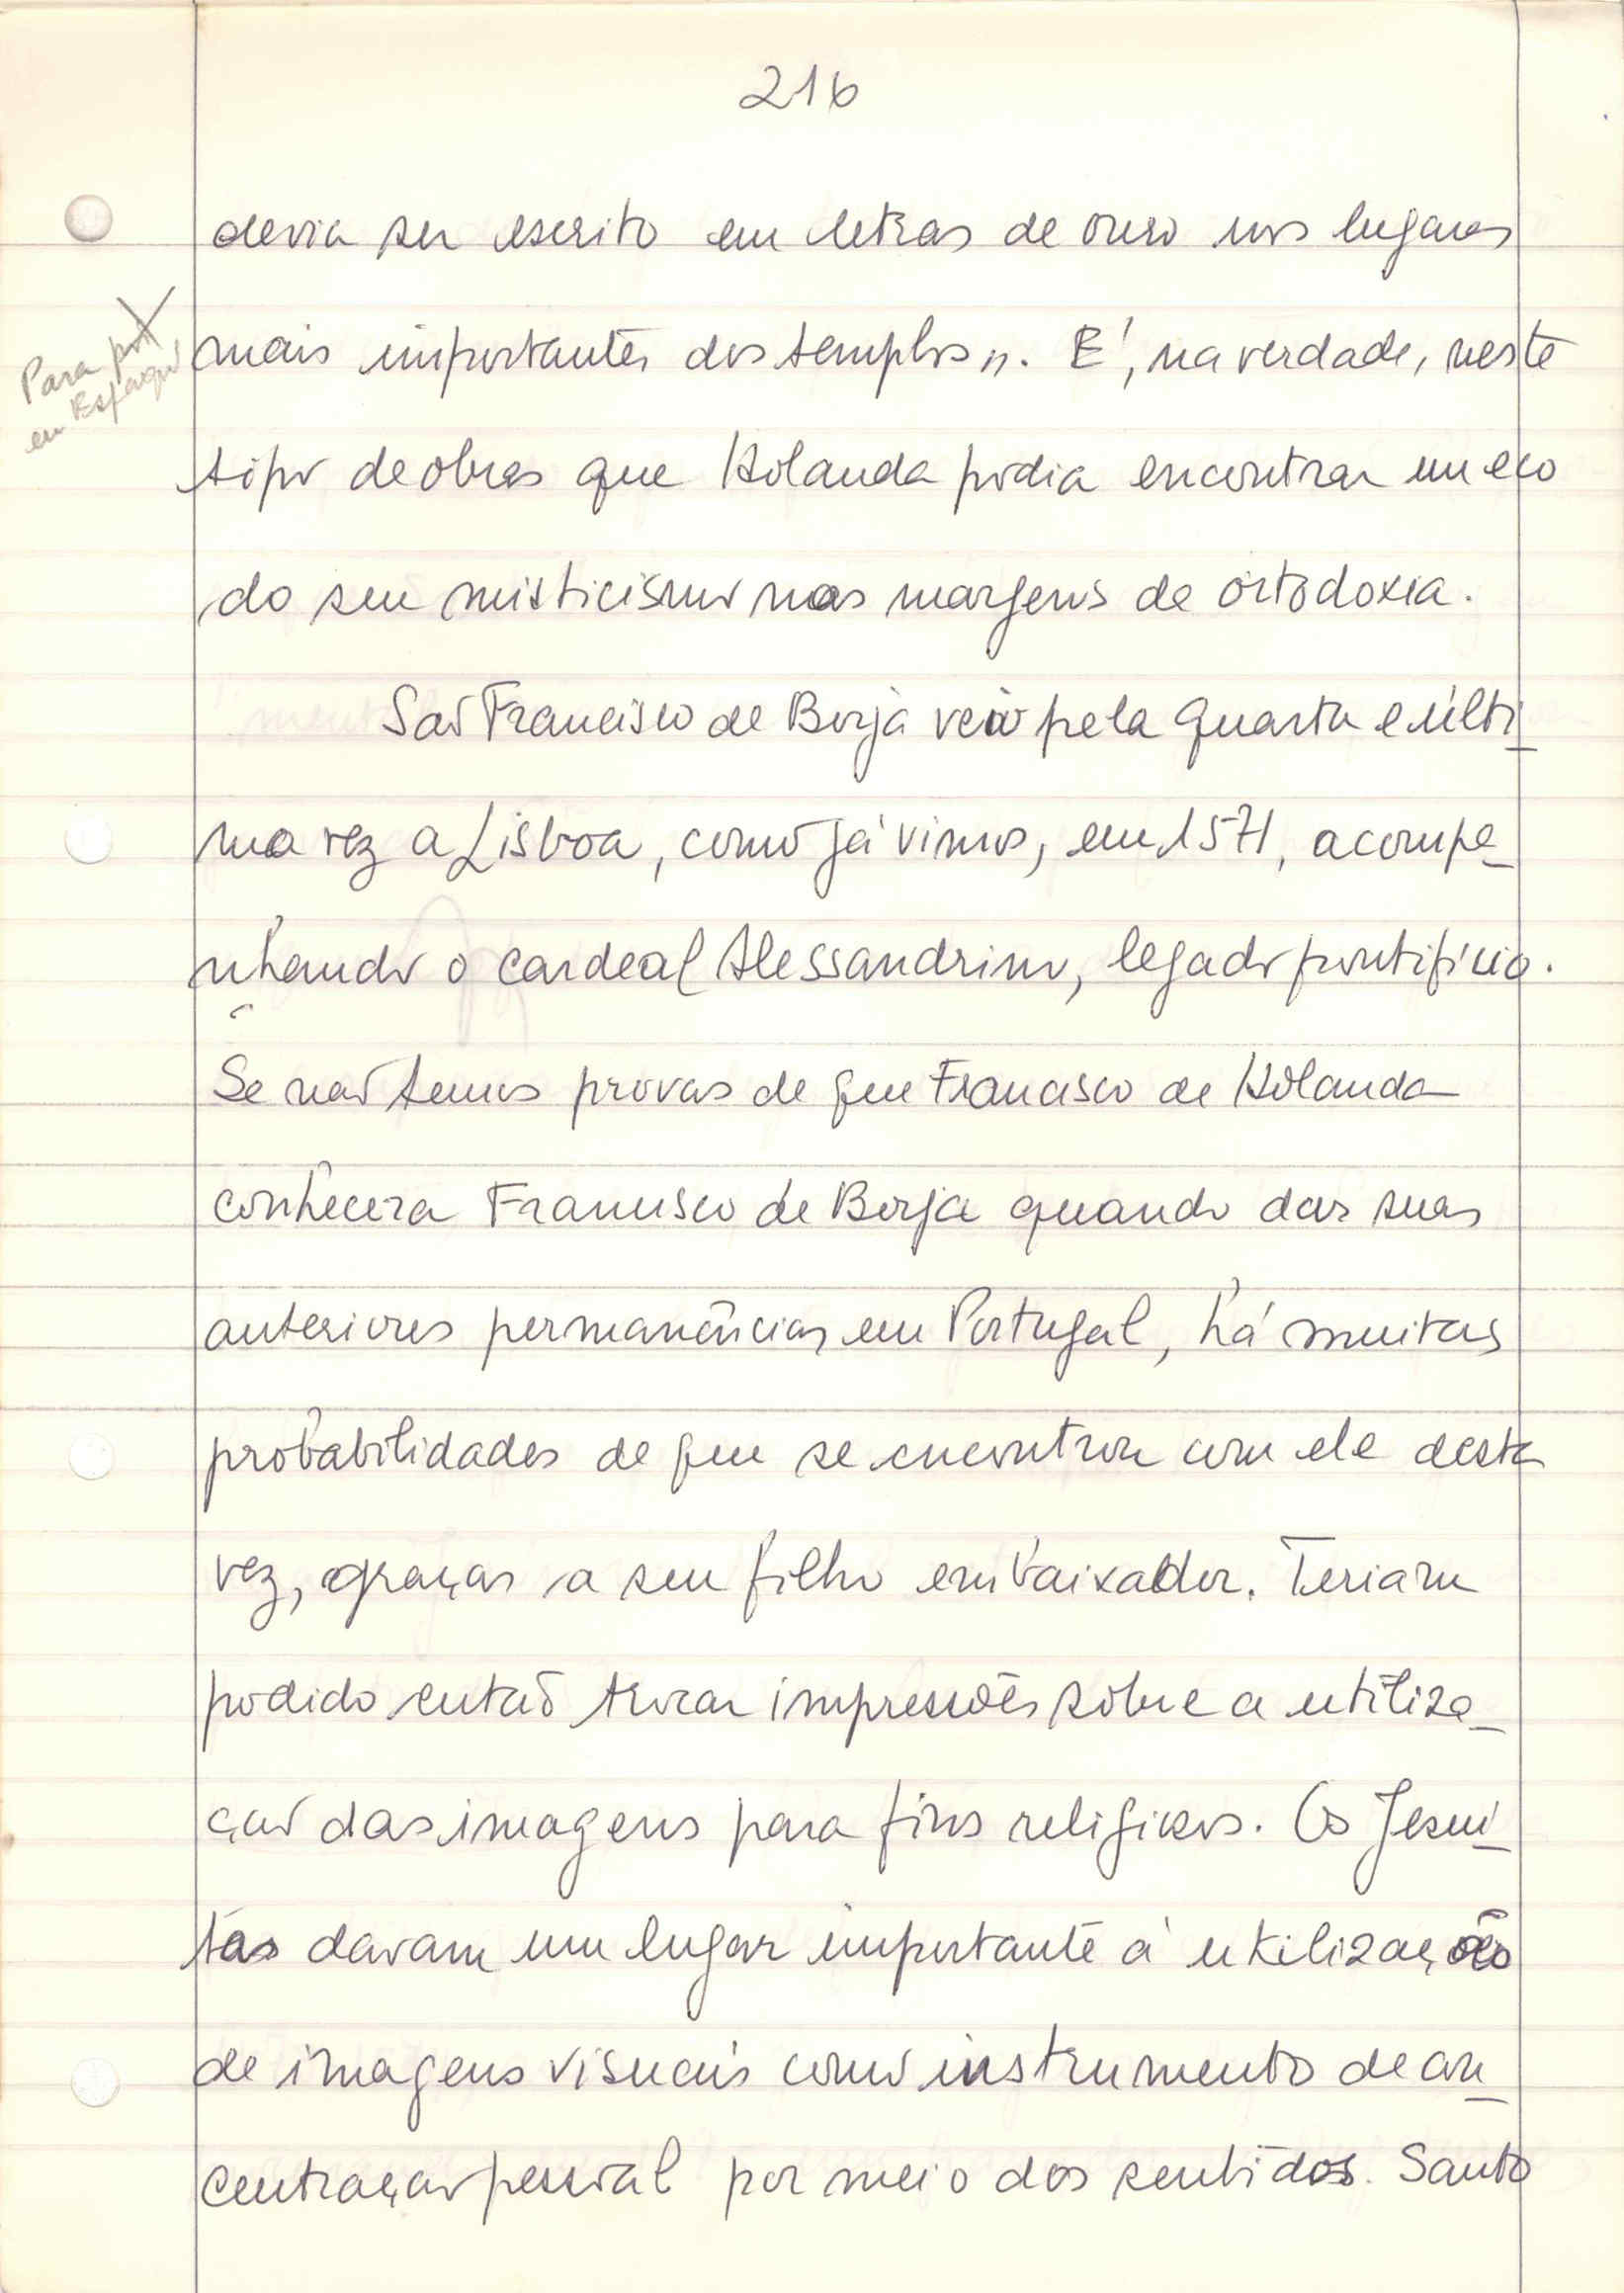 216
devia ser escrito em letras de ouro nos lugares
mais importantes dos templos". É, na verdade, neste
tipo de obras que Holanda podia encontrar um eco
do seu misticismo nas margens da ortodoxia.
São Francisco de Borja veio pela quarta e últi-
ma vez a Lisboa, como já vimos, em 1571, acompa-
nhando o cardeal Alessandrino, legado pontifício.
Se não temos provas de que Francisco de Holanda
conhecera Francisco de Borja quando das suas
anteriores permanências em Portugal, há muitas
probabilidades de que se encontrou com ele desta
vez, graças a seu filho embaixador. Teriam
podido então trocar impressões sobre a utiliza-
ção das imagens para fins religiosos. Os Jesuí-
tas davam um lugar importante à utilização
de imagens visuais como instrumento de con-
centração pessoal por meio dos sentidos. Santo
Para
em